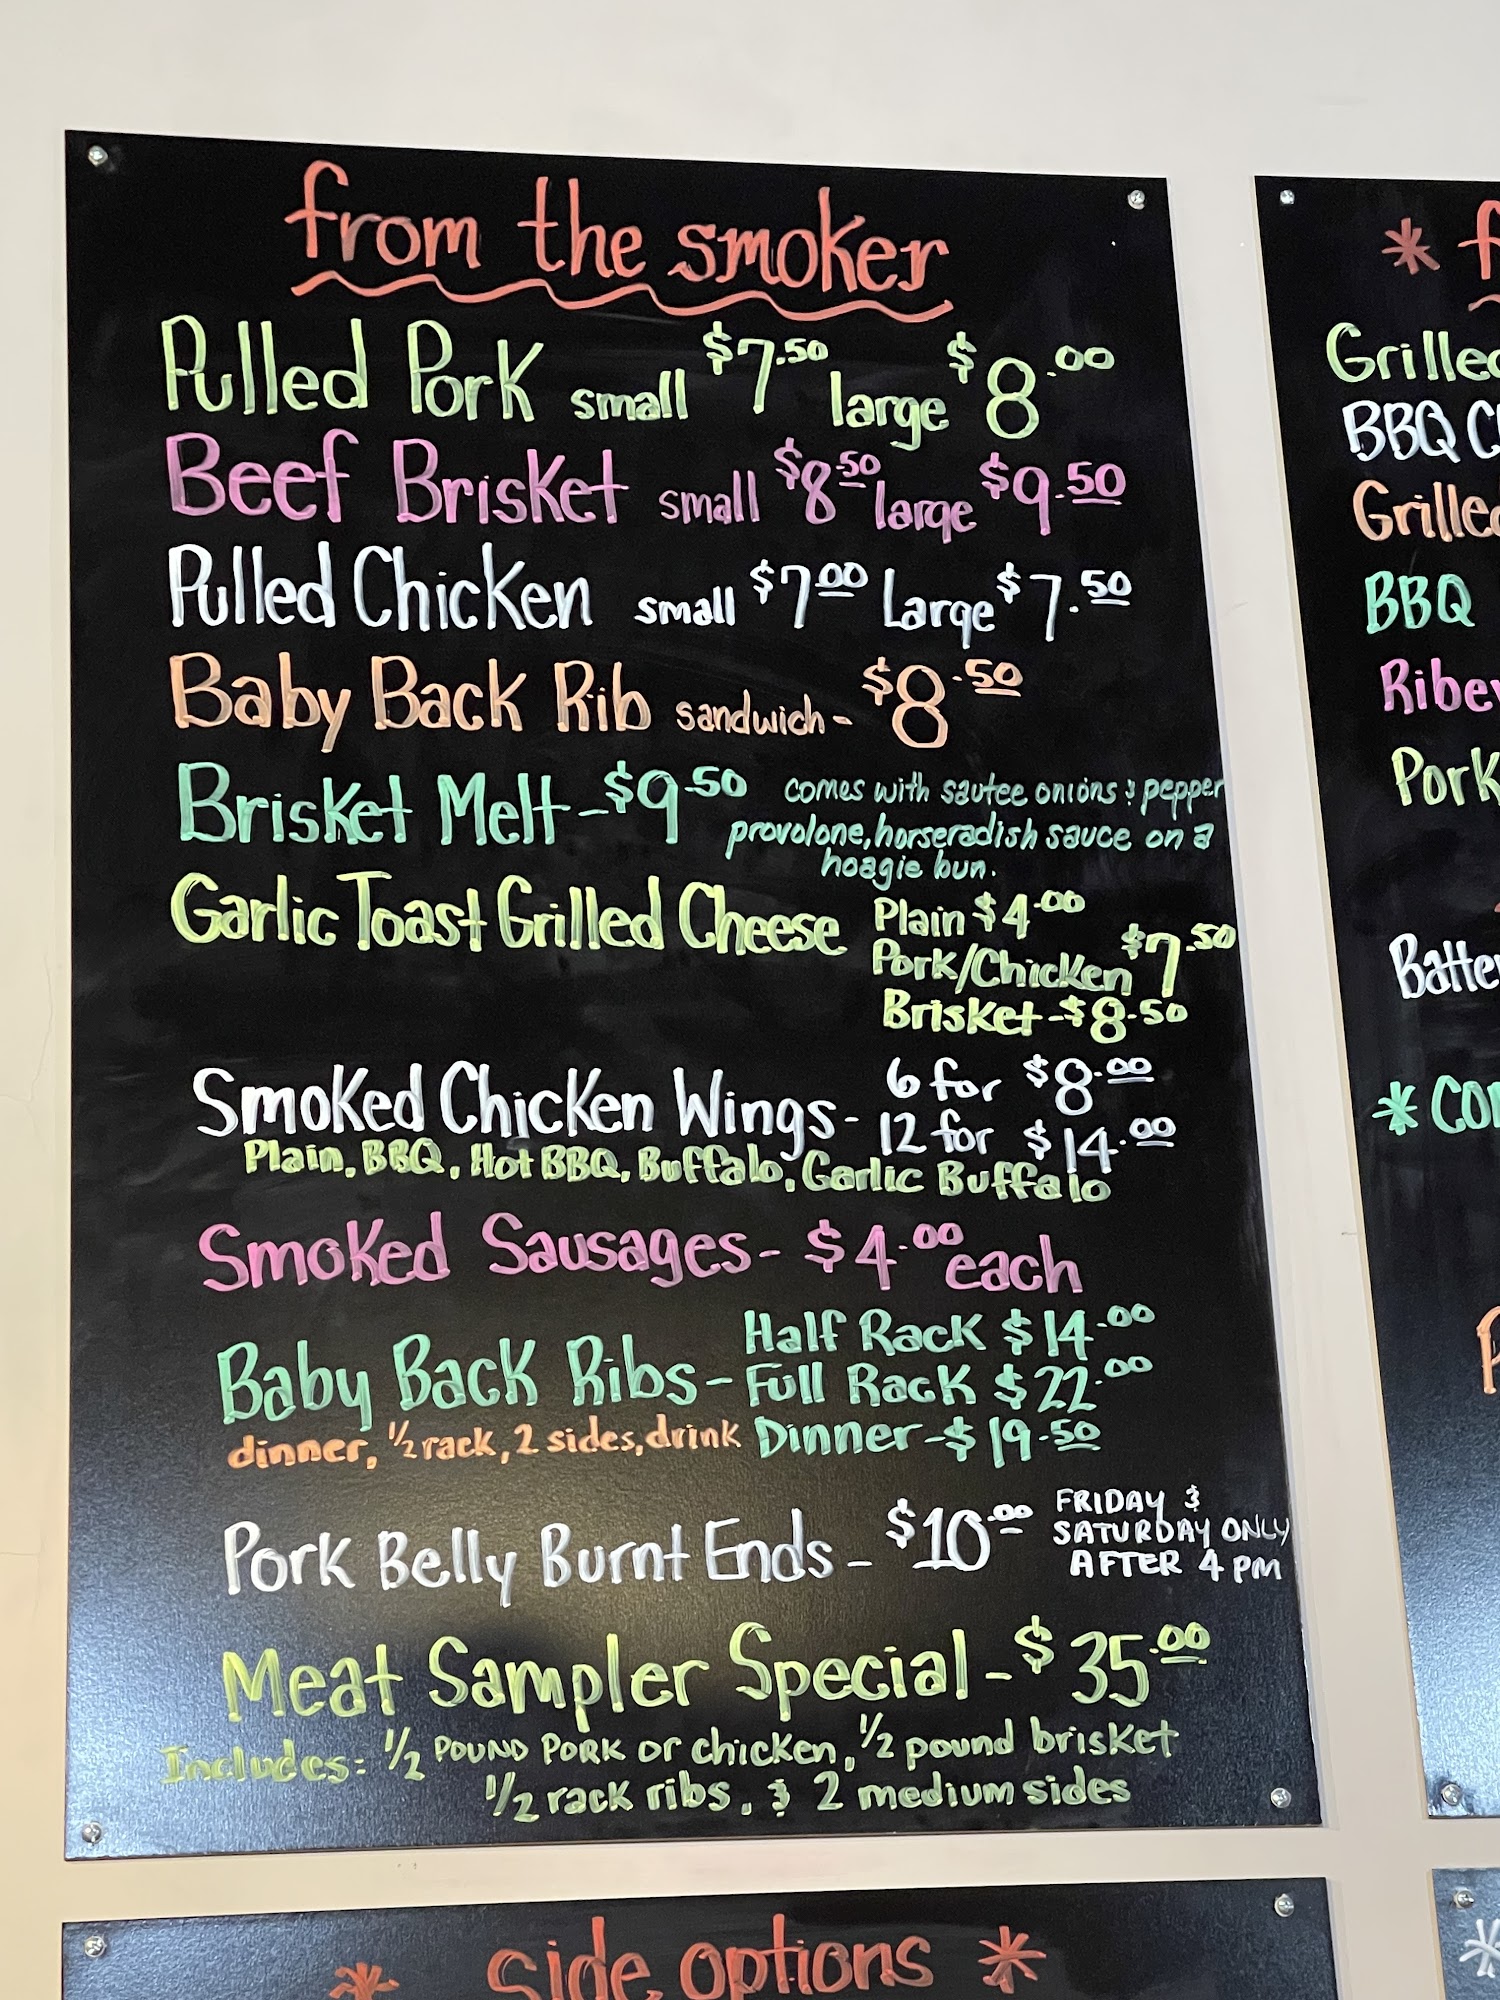 from the smoker
Pulled Pork small $7.50 large $8.00
Beef Brisket small $8.50 large $9.50
Pulled Chicken small $7.00 Large $7.50
Baby Back Rib sandwich - $8.50
Brisket Melt - $9.50 comes with sautee onions & pepper
provolone, horseradish sauce on a
hoagie bun.
Garlic Toast Grilled Cheese Plain $4.00
Pork/Chicken $7.50
Brisket - $8.50
Smoked Chicken Wings - 6 for $8.00
12 for $14.00
Plain, BBQ, Hot BBQ, Buffalo, Garlic Buffalo
Smoked Sausages - $4.00 each
Baby Back Ribs - Half Rack $14.00
Full Rack $22.00
dinner, 1/2 rack, 2 sides, drink Dinner - $19.50
Pork Belly Burnt Ends - $10.00 FRIDAY &
SATURDAY ONLY
AFTER 4 PM
Meat Sampler Special - $35.00
Includes: 1/2 POUND PORK or chicken, 1/2 pound brisket
1/2 rack ribs, & 2 medium sides
* side options *
* f
Grilled
BBQ C
Grilled
BBQ
Ribey
Pork
Batte
* CO
*